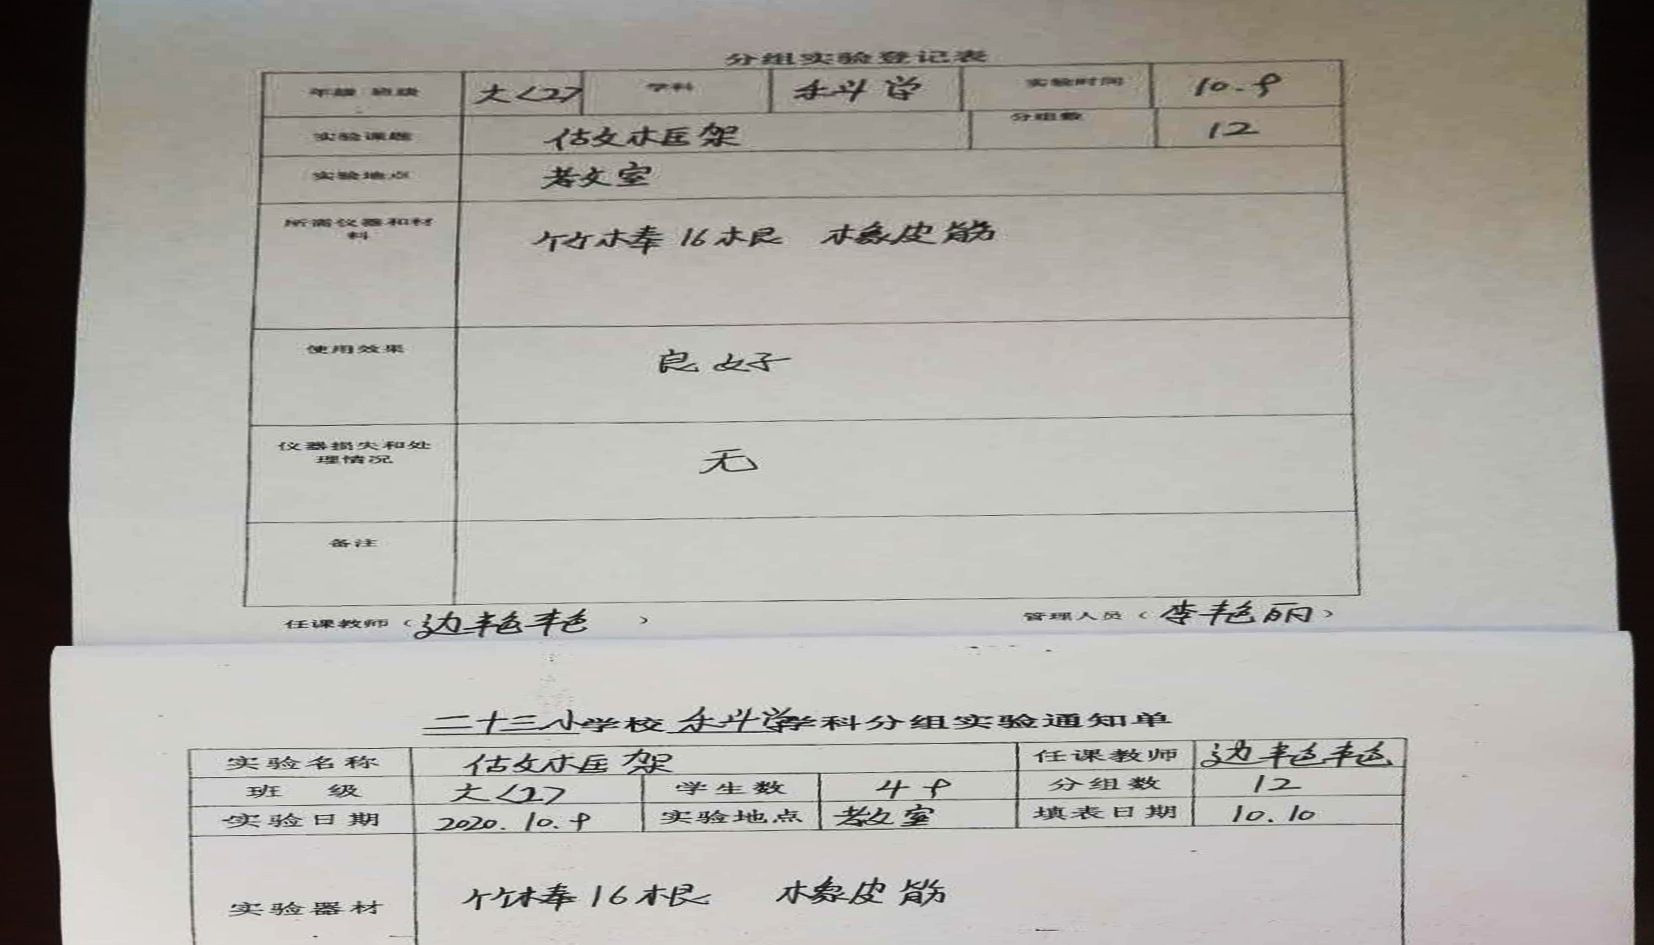 分组实验登记表
年级 班级 大<2> 学科 科学 实验时间 10.9
实验课题 估女木匡架 分组数 12
实验地点 教室
所需仪器和材料 竹棒16根 橡皮筋
使用效果 良好
仪器损失和处理情况 无
备注
任课教师（边艳艳）
管理人员（李艳丽）
二十三小学校科学学科分组实验通知单
实验名称 框架 任课教师 边艳艳
班 级 大<2> 学生数 49 分组数 12
实验日期 2020.10.9 实验地点 教室 填表日期 10.10
实验器材 竹棒16根 橡皮筋